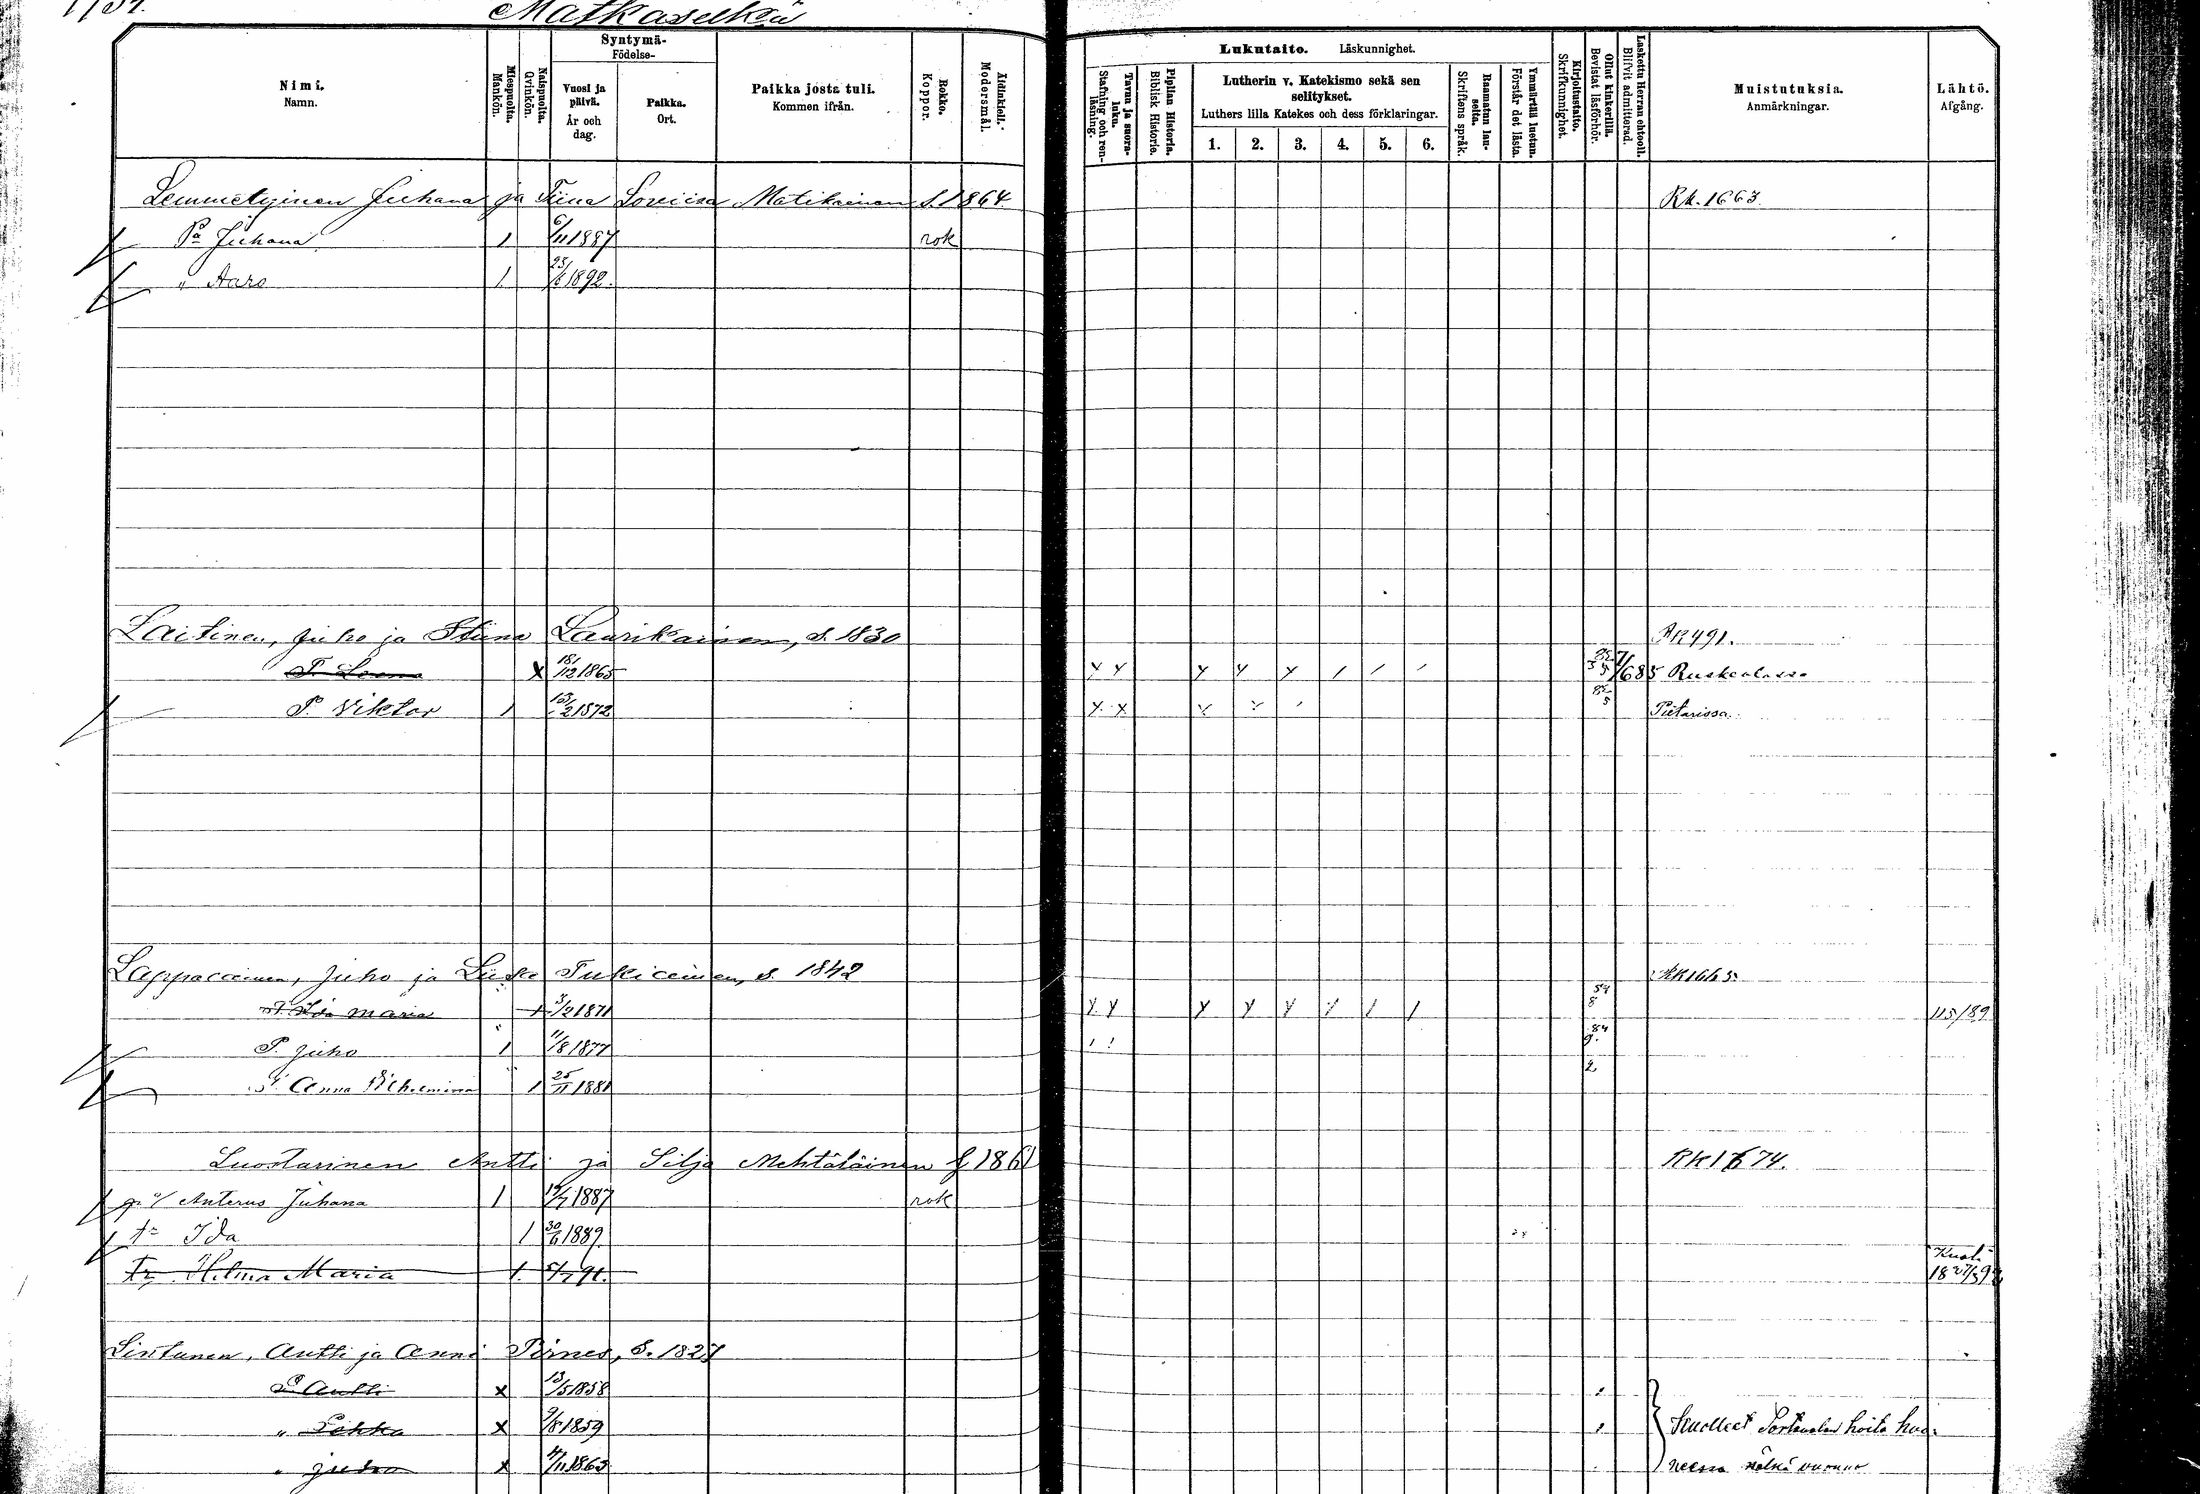 Matkaselkä
Syntymä-
Födelse-
Nimi.
Namn.
Miespuolta.
Mankön.
Naispuolta.
Qvinkön.
Vuosi ja päivä.
År och dag.
Paikka.
Ort.
Paikka josta tuli.
Kommen ifrån.
Rokko.
Koppor.
Äidinkieli.
Modersmål.
Lukutaito. Läskunnighet.
Tavuu ja suora-luku.
Stafning och ren-läsning.
Piplian Historia.
Biblisk Historie.
Lutherin v. Katekismo sekä sen selitykset.
Luthers lilla Katekes och dess förklaringar.
1. 2. 3. 4. 5. 6.
Raamatun lauseita.
Skriftens språk.
Ymmärtää luetun.
Förstår det lästa.
Kirjoitustaito.
Skrifkunnighet.
Ollut kinkerillä.
Bevistat läsförhör.
Laskettu Herran ehtooll.
Blifvit admitterad.
Muistutuksia.
Anmärkningar.
Lähtö.
Afgång.
Lemmetyinen Juhana ja Tiina Loviisa Matikainen s. 1864 Rk. 1663.
Pa Juhana 1 6/11 1887 rok
" Aaro 1 23/8 1892.
Laitinen, Juho ja Stiina Laurikainen, s. 1830 RK 491.
P. Leena x 18/12 1865 y y y y y / / / 7/6 85 Ruskealassa
P. Viktor 1 13/2 1872 x x Pietarissa.
Lappalainen, Juho ja Liisa Tukiainen, s. 1842 RK 1665
T. Ida Maria 3/2 1871 y y y y y / / / 84 8 115/89
P. Juho 1 11/8 1877 / / 84 9.
T. Anna Wilhelmina 1 25/11 1881 2
Luostarinen Antti ja Silja Mehtäläinen s 1861 RK 1674.
Anterus Juhana 1 1887 rok
tr Ida 1 30/6 1889.
Tr Hilma Maria 1. 5/7 91. Kuoli 18 27/3 92
Sintunen, Antti ja Anni Pirnes, S. 1827
P Antti x 13/5 1858
" Pekka x 9/8 1859 Kuolleet Sortavalan hoito huo-
" Juho x 4/11 1863 neessa nälkä vuonna